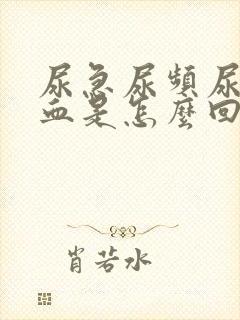 尿急尿頻尿
血是怎麼回
肖若水